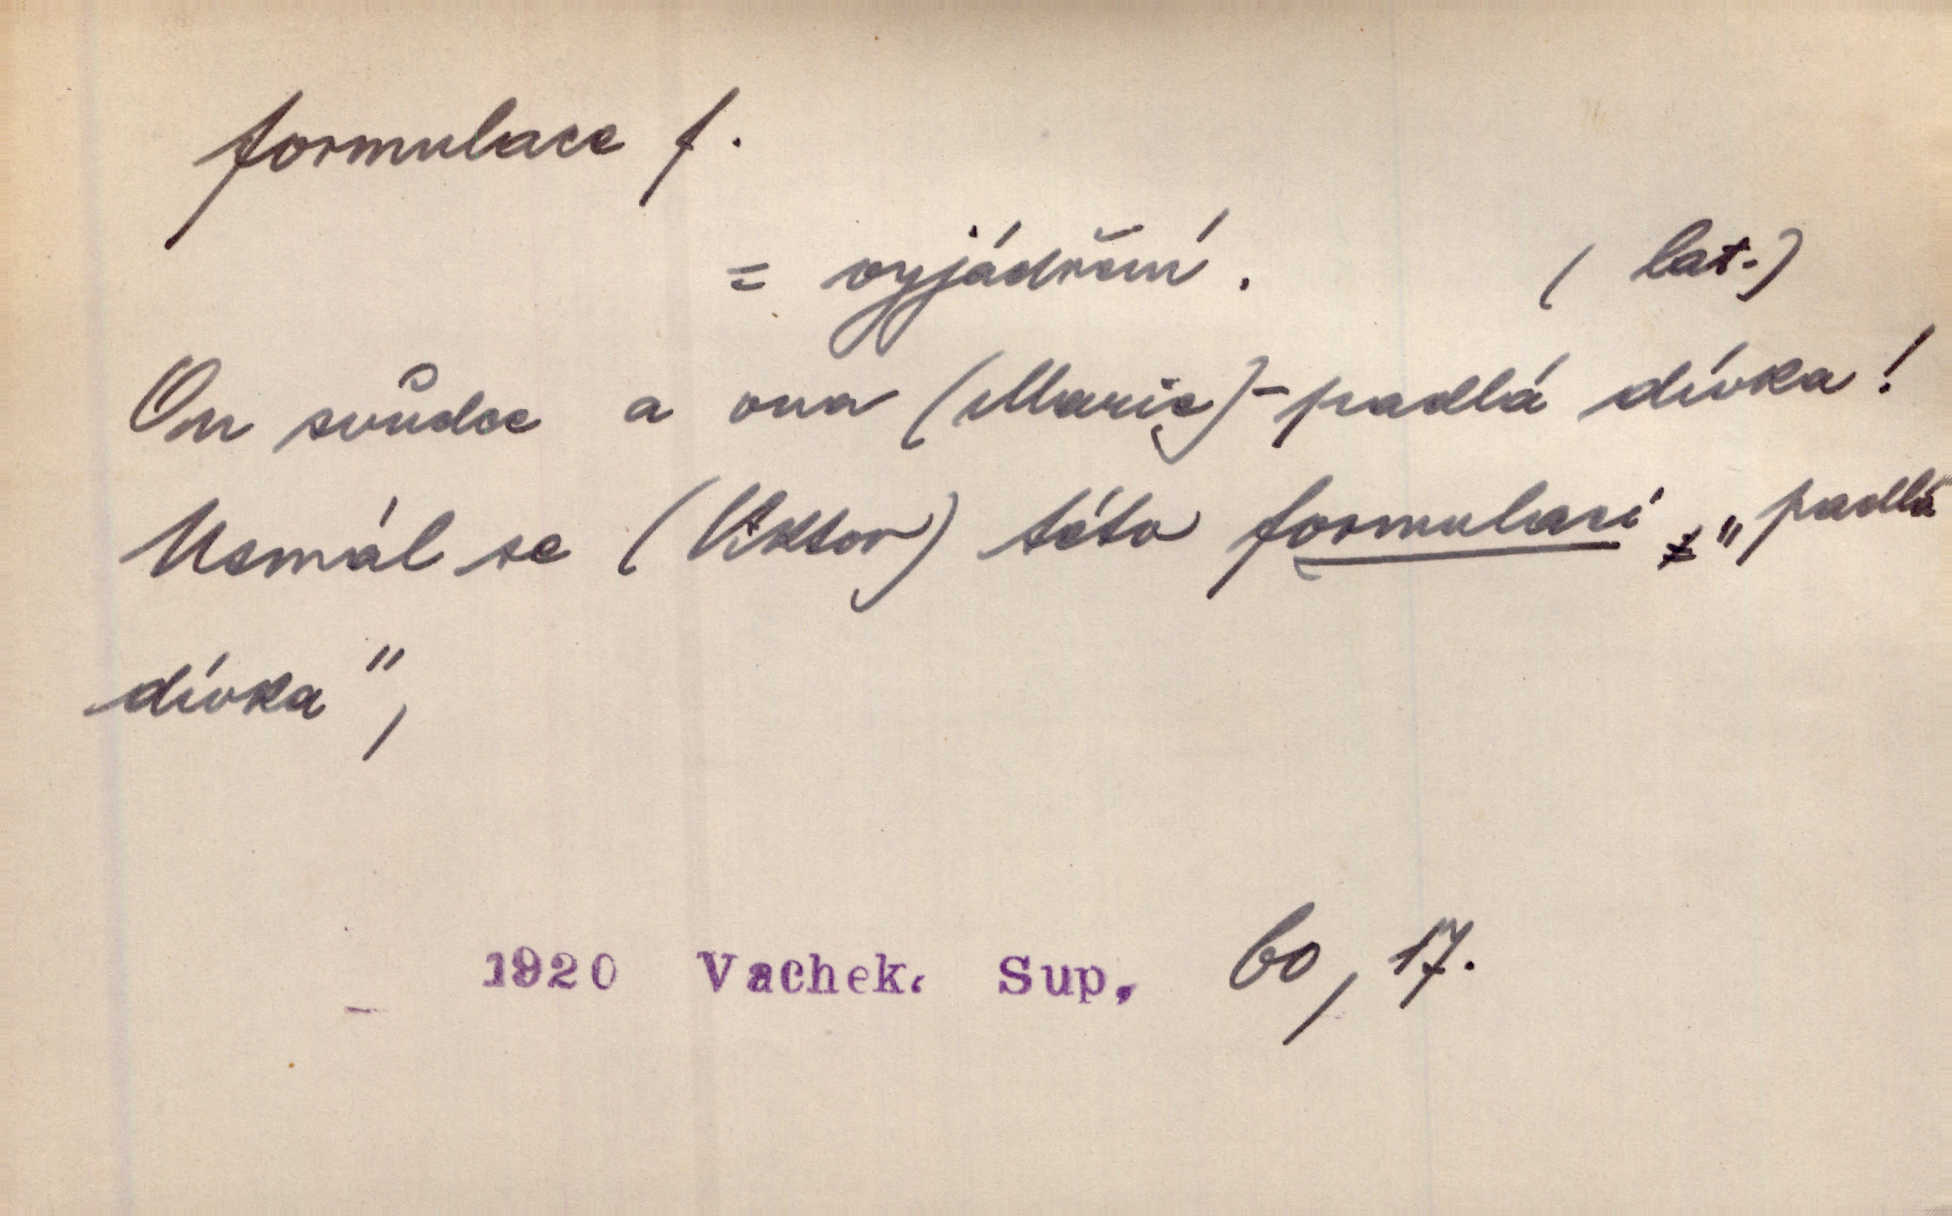 formulace f.
= vyjádření. (lat.)
On svůdce a ona (Marie) - padlá dívka!
Usmál se (Viktor) této formulaci, "padlá
dívka",
1920 Vachek. Sup. 60, 17.